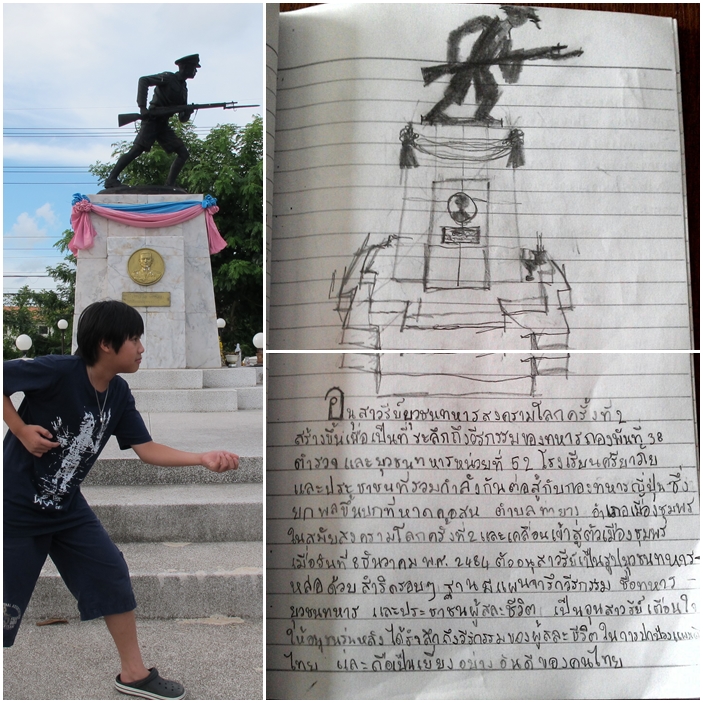 อนุสาวรีย์ยุวชนทหารสงครามโลกครั้งที่ 2
สร้างขึ้นเพื่อเป็นที่ระลึกถึงวีรกรรมของทหารกองพันที่ 38
ตำรวจ และยุวชนทหารหน่วยที่ 52 โรงเรียนศรียาภัย
และประชาชนที่รวมกำลังกันต่อสู้กับกองทหารญี่ปุ่น ซึ่ง
ยกพลขึ้นบกที่หาดคอสน ตำบลท่ายาง อำเภอเมืองชุมพร
ในสมัยสงครามโลกครั้งที่ 2 และเคลื่อนเข้าสู่ตัวเมืองชุมพร
เมื่อวันที่ 8 ธันวาคม พ.ศ. 2484 ตัวอนุสาวรีย์เป็นรูปยุวชนทหาร-
หล่อด้วยสำริดรอบๆ ฐานมีแผ่นจารึกวีรกรรม ชื่อทหาร -
ยุวชนทหาร และประชาชนผู้สละชีวิต เป็นอนุสาวรีย์เตือนใจ
ให้อนุชนรุ่นหลังได้รำลึกถึงวีรกรรมของผู้สละชีวิตในการปกป้องแผ่นดิน
ไทย และถือเป็นเยี่ยงอย่างอันดีของคนไทย